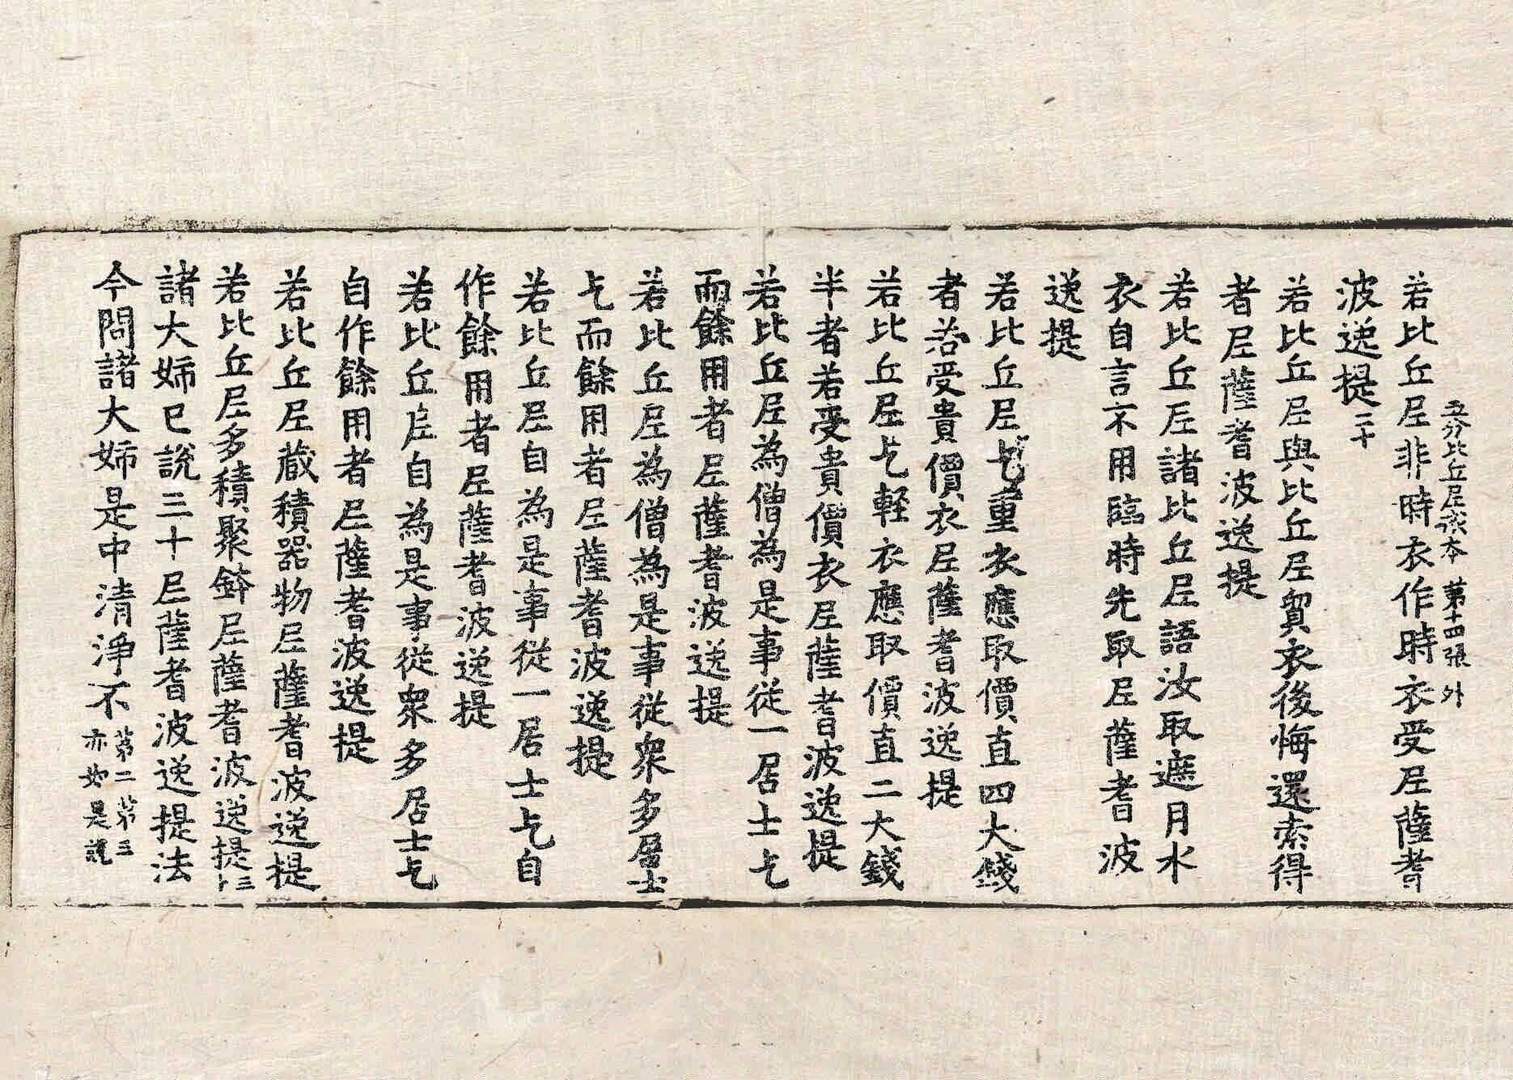 五分比丘尼戒本 第十四張 外
若比丘尼非時衣作時衣受尼薩耆
波逸提二十
若比丘尼與比丘尼貿衣後悔還索得
者尼薩耆波逸提
若比丘尼諸比丘尼語汝取遮月水
衣自言不用臨時先取尼薩耆波
逸提
若比丘尼乞重衣應取價直四大錢
者若受貴價衣尼薩耆波逸提
若比丘尼乞軽衣應取價直二大錢
半者若受貴價衣尼薩耆波逸提
若比丘尼為僧為是事從一居士乞
而餘用者尼薩耆波逸提
若比丘尼為僧為是事從衆多居士
乞而餘用者尼薩耆波逸提
若比丘尼自為是事從一居士乞自
作餘用者尼薩耆波逸提
若比丘尼自為是事從衆多居士乞
自作餘用者尼薩耆波逸提
若比丘尼蔵積器物尼薩耆波逸提
若比丘尼多積聚鉢尼薩耆波逸提三十
諸大姉已說三十尼薩耆波逸提法
今問諸大姉是中清淨不第二第三
亦如是說